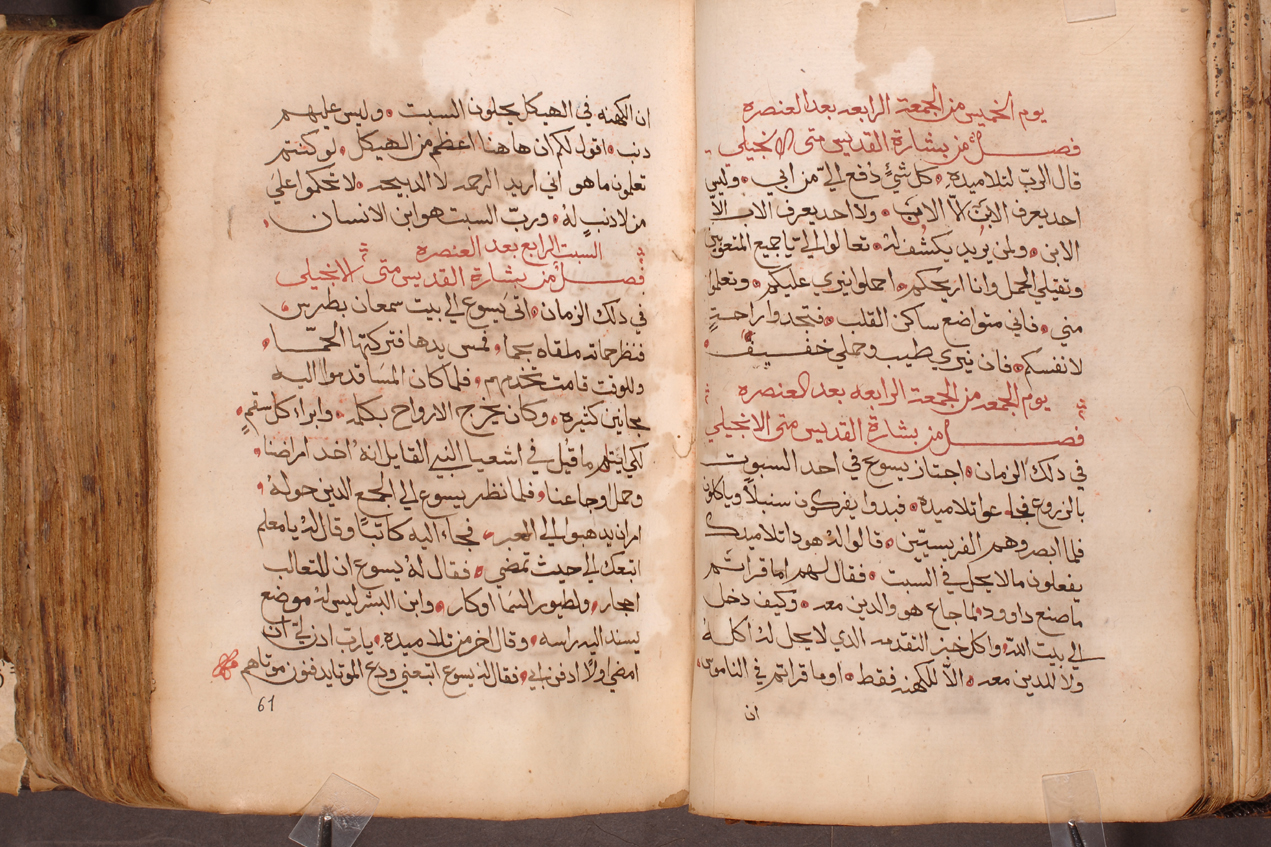 يوم الخميس من الجمعة الرابعه بعد العنصره
فصل من بشارة القديس متى الانجيلي
قال الربّ لتلاميذه كل شيٍ دفع اليّ من ابي وليس
احد يعرف الابن الا الاب ولا احد يعرف الاب الا
الابن ولمن يريد يكشف لهُ تعالوا اليّ يا جميع المتعوبين
وثقيلي الحمل وانا اريحكم احملوا نيري عليكم وتعلموا
مني فاني متواضع ساكن القلب فتجدوا راحةٍ
لانفسكم فان نيري طيب وحملي خفيف
يوم الجمعه من الجمعة الرابعه بعد العنصره
فصل من بشارة القديس متى الانجيلي
في دلك الزمان اجتاز يسوع في احد السبوت
بالزروع فجاعوا تلاميذه فبدوا يفركون سنبلاً وياكلون
فلما ابصروهم الفريسيّين قالوا لهُ هودا تلاميدك
يفعلون ما لا يحل في السبت فقال لهم اما قراتم
ما صنع داوود لما جاع هو والدين معه وكيف دخل
الى بيت اللّه واكل خبز التقدمه الدي لا يحل له اكلهُ
ولا للدين معه الاّ للكهنه فقط اوما قراتم في الناموس
ان
ان الكهنه في الهيكل يحلون السبت وليس عليهم
دنب اقول لكم ان هاهنا اعظم من الهيكل لو كنتم
تعلمون ما هو اني اريد الرحمه لا الدبيحه لا تحكموا على
من لا دنبٍ لهُ ورب السبت هو ابن الانسان
السبت الرابع بعد العنصره
فصل من بشارة القديس متى الانجيلي
في دلك الزمان اتى يسوع الى بيت سمعان بطرس
فنظر حماته ملقاه بحما فمس يدها فتركتها الحمّا
وللوقت قامت تخدمهم فلما كان المسا قدموا اليه
مجانين كثيره وكان يخرج الارواح بكلمه وابراء كل سقمٍ
لكي يتم ما قيل في اشعيا النبي القايل انهُ اخد امراضنا
وحمل اوجاعنا فلما نظر يسوع الى الجمع الدين حولهُ
امر ان يدهبوا الى العبر فجاء اليه كاتبًا وقال لهُ يا معلم
اتبعك الى حيث تمضي فقال لهُ يسوع ان للتعالب
اجحار ولطيور السما اوكار وابن البشر ليس لهُ موضع
يسند اليه راسه وقال اخر من تلاميده يا رب ادن لي ان
امضي اولاً ادفن ابي فقال له يسوع اتبعني ودع الموتا يدفنون موتاهم
61